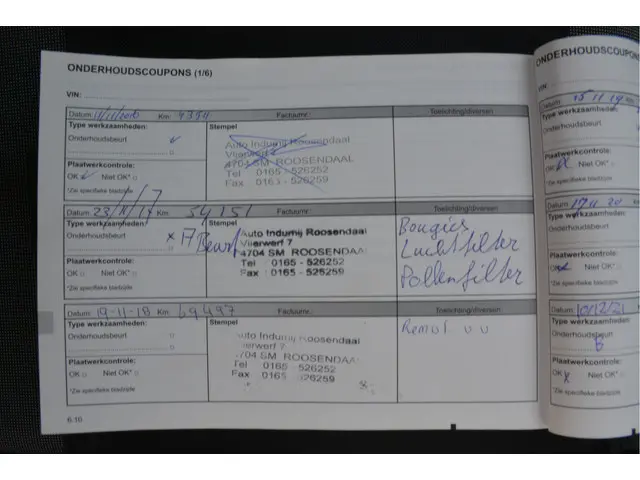 ONDERHOUDSCOUPONS (1/6)
VIN:
Datum: Km: Factuurnr.: Toelichting/diversen
Type werkzaamheden: Stempel
Onderhoudsbeurt
Auto Indumij Roosendaal
Vlierwerf 7
4704 SM ROOSENDAAL
Tel 0165 - 526252
Fax 0165 - 526259
Plaatwerkcontrole:
OK Niet OK*
*Zie specifieke bladzijde
Datum: 23/11/17 Km: 54151 Factuurnr.: Toelichting/diversen
Type werkzaamheden: Stempel
Onderhoudsbeurt x A Beurt
Auto Indumij Roosendaal
Vlierwerf 7
4704 SM ROOSENDAAL
Tel : 0165 - 526252
Fax : 0165 - 526259
Bougies
Luchtfilter
Pollenfilter
Plaatwerkcontrole:
OK Niet OK*
*Zie specifieke bladzijde
Datum: 19-11-18 Km: 69497 Factuurnr.: Toelichting/diversen
Type werkzaamheden: Stempel
Onderhoudsbeurt
uto Indumij Roosendaal
lierwerf 7
704 SM ROOSENDAA
Tel : 0165 526252
Fax : 0165 526259
Plaatwerkcontrole:
OK Niet OK*
*Zie specifieke bladzijde
6.16
ONDERHOUDSCOUPONS
VIN:
Datum: 15 11 19
Type werkzaamheden:
Onderhoudsbeurt
Plaatwerkcontrole:
OK Niet OK*
*Zie specifieke bladzijde
Datum: 17 11 20
Type werkzaamheden:
Onderhoudsbeurt
Plaatwerkcontrole:
OK Niet OK*
*Zie specifieke bladzijde
Datum: 10/12/21
Type werkzaamheden:
Onderhoudsbeurt
Plaatwerkcontrole:
OK x Niet OK*
*Zie specifieke bladzijde